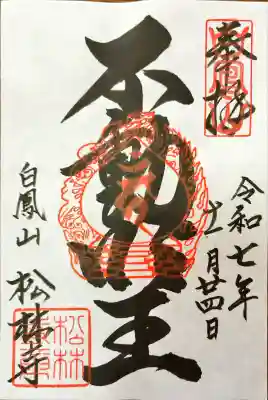 奉拝
令和七年
十一月廿四日
不動明王
白鳳山 松林寺
松林